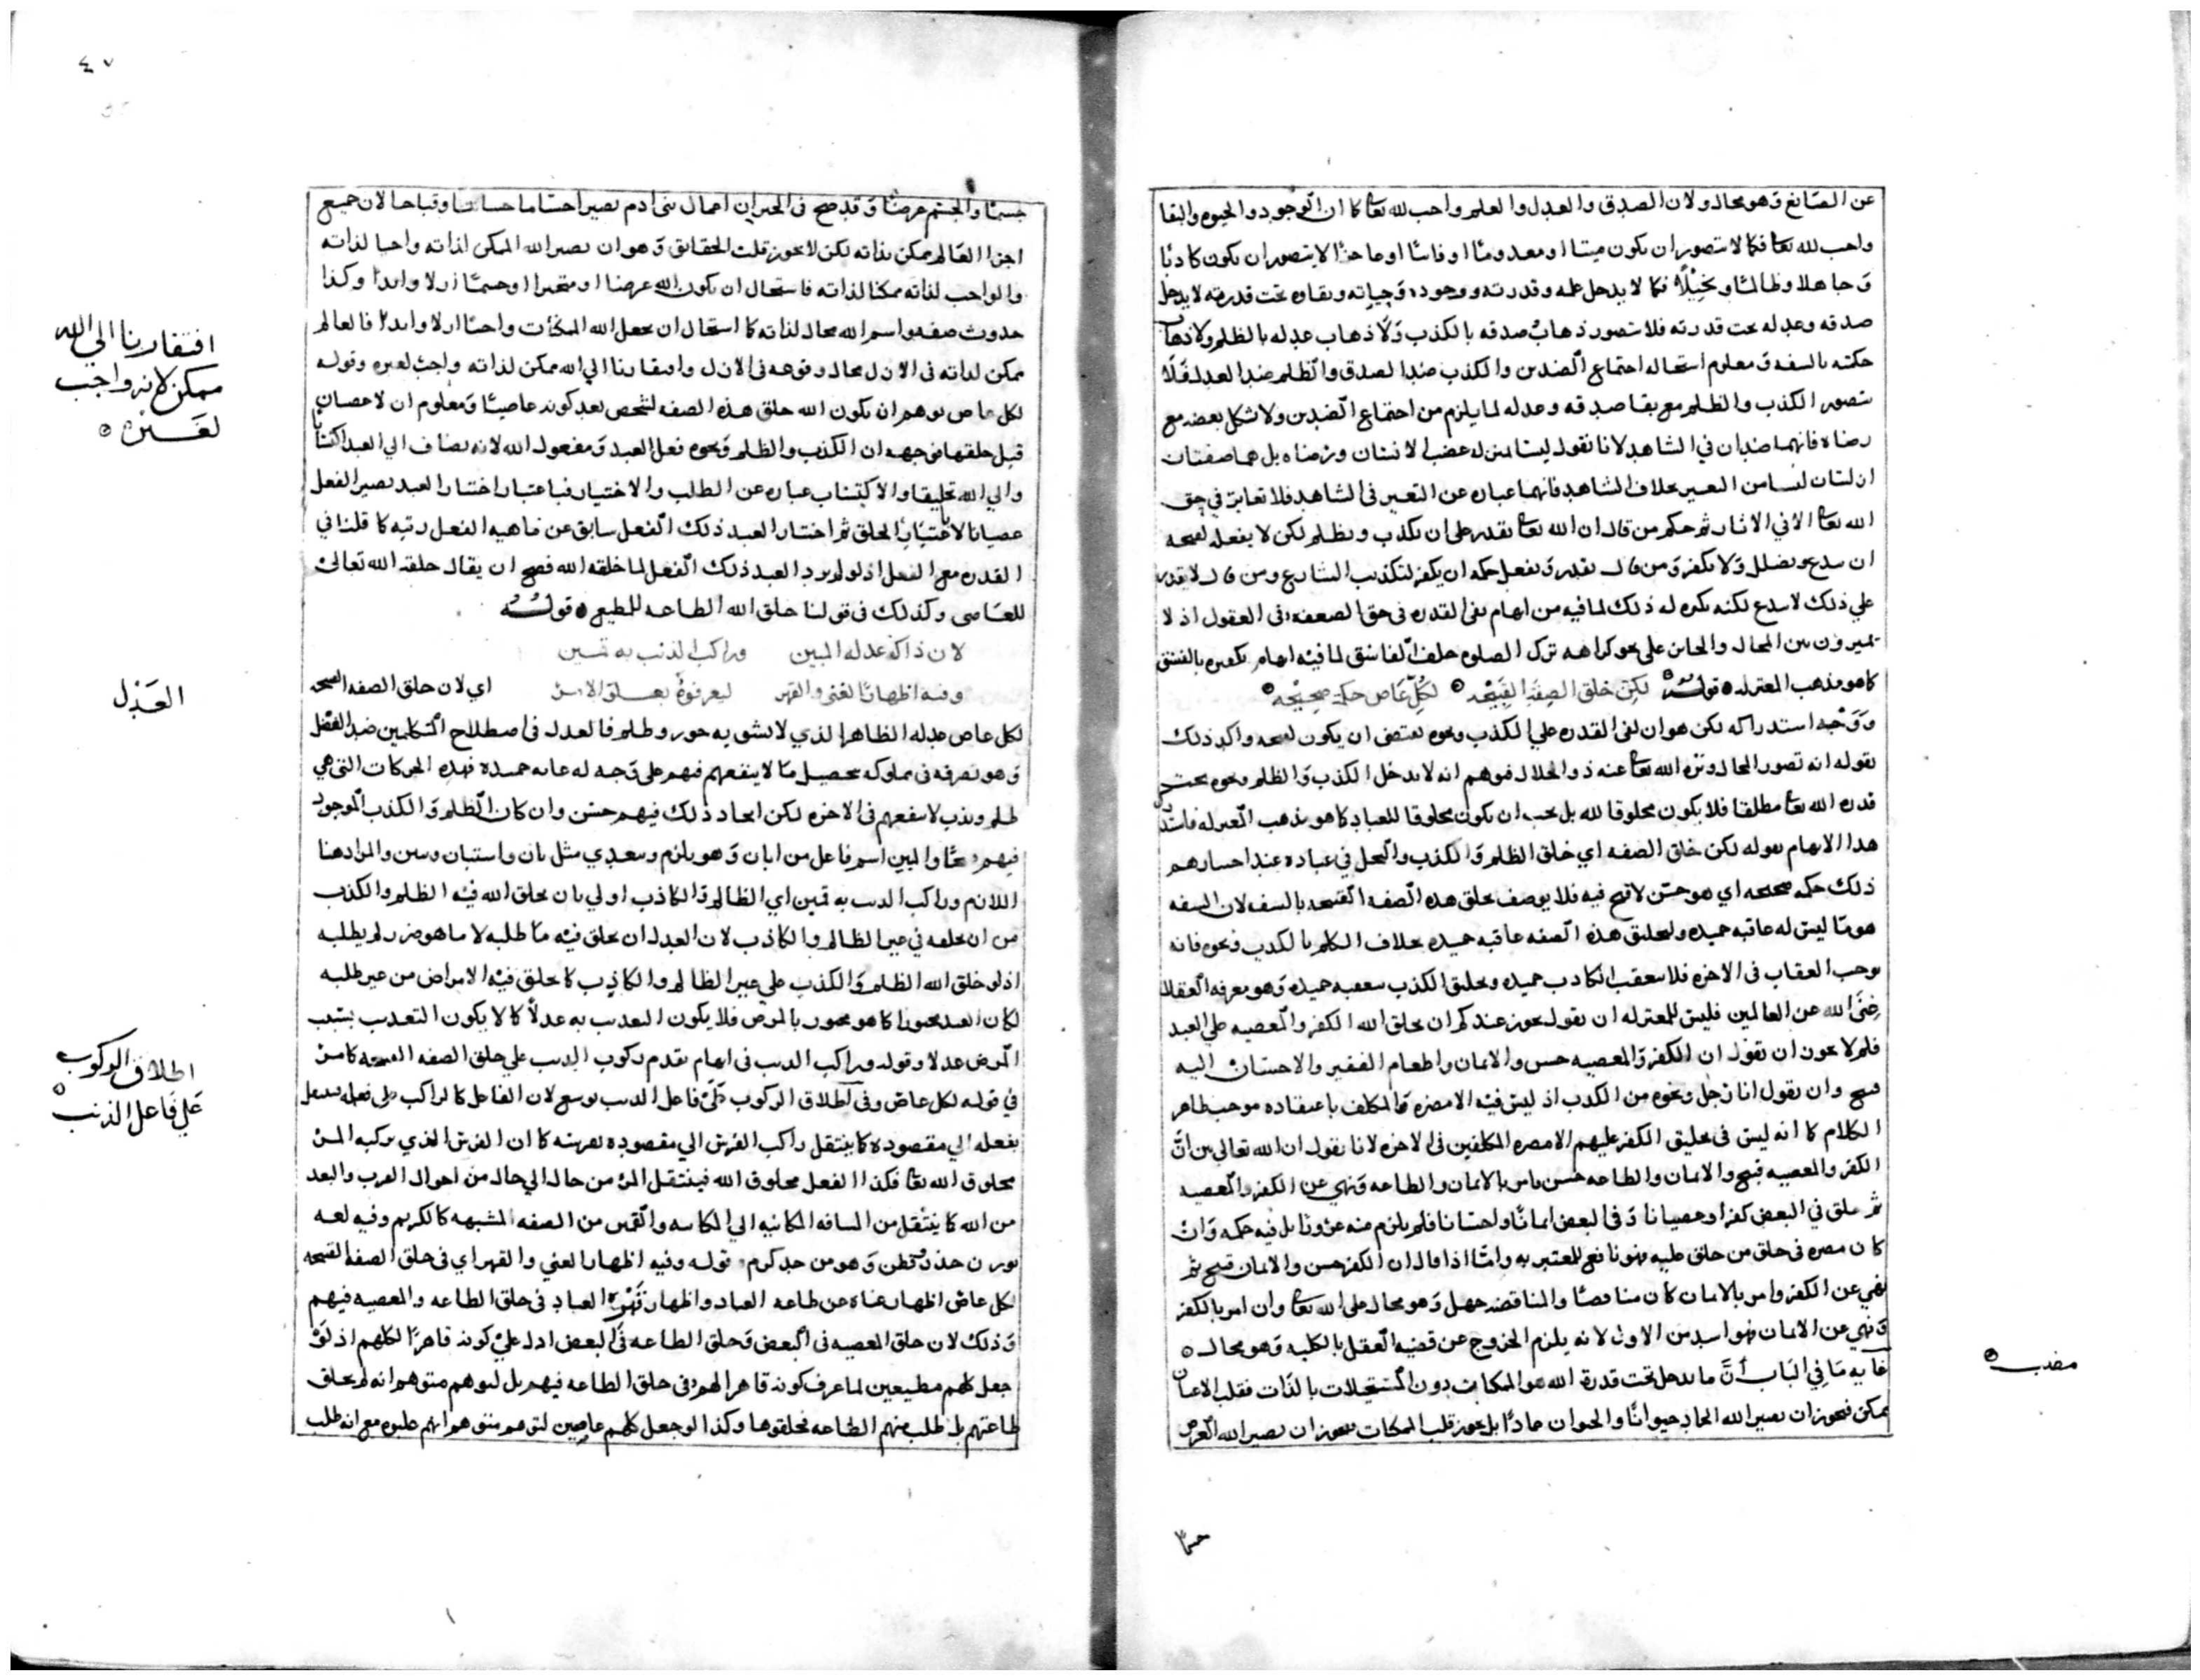 عن الصانع وهو محال ولان الصدق والعدل والعلم واجب لله تعا كما ان الوجود والحيوه والبقا
واجب لله تعا فكما لا يتصور ان يكون ميتا او معدوما او فانيا او عاجزا لا يتصور ان يكون كاذبا
وجاهلا وظالما وبخيلا فكما لا يدخل علمه وقدرته ووجوده وحياته وبقاوه تحت قدرته لا يدخل
صدقه وعدله تحت قدرته فلا يتصور ذهاب صدقه بالكذب ولا ذهاب عدله بالظلم ولا ذهاب
حكمته بالسفه ومعلوم استحاله اجتماع الضدين والكذب ضد الصدق والظلم ضد العدل فلا
يتصور الكذب والظلم مع بقا صدقه وعدله لما يلزم من اجتماع الضدين ولا شكل بغضه مع
رضاه فانهما ضدان في الشاهد لانا نقول ليسا بمنزله غضب الانسان ورضاه بل هما صفتان
ازليتان ليسا من التغير بخلاف الشاهد فانهما عباره عن التغير في الشاهد فلا تغاير في حق
الله تعا الا في الاثار ثم حكم من قال ان الله تعا يقدر على ان يكذب ويظلم لكن لا يفعله لقبحه
ان يبدع ويضلل ولا يكفر ومن قال يقدر ويفعل حكمه ان يكفر لتكذيب الشارع ومن قال لا يقدر
علي ذلك لا يبدع لكنه يكره له ذلك لما فيه من ايهام نفى القدره في حق الضعفه في العقول اذ لا
يميزون بين المحال والجائز على نحو كراهه ترك الصلوه خلف الفاسق لما فيه ايهام تكفيره بالفسق
كما هو مذهب المعتزله قوله لكن خلق الصفة القبيحه لكل عاص حكمة صحيحه
ووجه استدراكه لكن هو ان نفى القدره علي الكذب ونحوه يقتضى ان يكون لقبحه واكد ذلك
بقوله انه تصور المحال وتنزه الله تعا عنه ذو الجلال فيوهم انه لا يدخل الكذب والظلم ونحوه تحت
قدره الله تعا مطلقا فلا يكون مخلوقا لله بل يجب ان يكون مخلوقا للعباد كما هو مذهب المعتزله
هذا الايهام بقوله لكن خلق الصفه اي خلق الظلم والكذب والبخل في عباده عند اختيارهم
ذلك حكمه صحيحه اي هو حسن لا قبح فيه فلا يوصف بخلق هذه الصفه القبيحه بالسفه لان السفه
هو ما ليس له عاقبه حميده ولخلق هذه الصفه عاقبه حميده بخلاف التكلم بالكذب ونحوه فانه
يوجب العقاب في الاخره فلا تعقب الكاذب حميده وتخليق الكذب تعقبه حميده وهو معرفه العقلا
غنى الله عن العالمين فليس للمعتزله ان يقول يجوز عندكم ان يخلق الله الكفر والمعصيه علي العبد
فلم لا يجوز ان يقول ان الكفر والمعصيه حسن والايمان واطعام الفقير والاحسان اليه
قبيح وان يقول انا رجل ونحوه من الكذب اذ ليس فيه الا مضره المكلف باعتقاده موجب ظاهر
الكلام كما انه ليس في تخليق الكفر عليهم الا مضره المكلفين في الاخره لانا نقول ان الله تعالى بين ان
الكفر والمعصيه قبيح والايمان والطاعه حسن يامر بالايمان والطاعه ونهي عن الكفر والمعصيه
ثم خلق في البعض كفرا وعصيانا وفي البعض ايمانا واحسانا فلم يلزم منه بل فيه حكمه وان
كان مضره في حق من خلق عليه فهو نافع للمعتبر به واما اذا قال ان الكفر حسن والايمان قبيح ثم
نهي عن الكفر وامر بالايمان كان مناقضا والمناقضه جهل وهو محال على الله تعا وان امر بالكفر
ونهي عن الايمان فهو اسد من الاول لانه يلزم الخروج عن قضيه العقل بالكليه وهو محال
غايه ما في الباب ان ما يدخل تحت قدرة الله هو الممكنات دون المستحيلات بالذات فقلب الاعيان
ممكن فيجوز ان يصير الله الجماد حيوانا والحيوان جمادا بل يجوز قلب الممكنات فيجوز ان يصير الله العرض
٤٧
جسما والجسم عرضا وقد صح في الخبر ان اعمال بني ادم يصير اجساما حسانا وقباحا لان جميع
اجزا العالم ممكن بذاته لكن لا يجوز قلب الحقائق وهو ان يصير الله الممكن لذاته واجبا لذاته
والواجب لذاته ممكنا لذاته فاستحال ان يكون الله عرضا او متحيزا او جسما ازلا وابدا وكذا
حدوث صفه واسم الله محال لذاته كما استحال ان يجعل الله الممكنات واجبا ازلا وابدا فالعالم
ممكن لذاته في الازل محال وقوعه في الازل وافتقارنا الي الله ممكن لذاته واجب لغيره وقوله
لكل عاص يوهم ان يكون الله خلق هذه الصفه لشخص بعد كونه عاصيا ومعلوم ان لا عصيان
قبل خلقها من جهه ان الكذب والظلم ونحوه فعل العبد ومفعول الله لانه يضاف الي العبد اكتسابا
والي الله تخليقا والاكتساب عباره عن الطلب والاختيار فباعتبار اختيار العبد يصير الفعل
عصيانا لا باعتبار الخلق ثم اختيار العبد ذلك الفعل سابق عن ماهيه الفعل رتبه كما قلنا في
القدره مع الفعل اذ لو لم يرد العبد ذلك الفعل لما خلقه الله فصح ان يقال خلقه الله تعالى
للعاصى وكذلك في قولنا خلق الله الطاعه للمطيع قوله
لان ذاك عدله المبين وراكب الذنب به قمين
وفيه اظهار الغنى والقهر ليعرفوه اي لان خلق الصفه القبيحه
لكل عاص عدله الظاهر الذي لا يشوبه جور وظلم فالعدل في اصطلاح المتكلمين ضد الفضل
وهو تصرفه في مملوكه بتحصيل ما لا ينفعهم فيهم على وجه له عاقبه حميده فهذه الحركات التي هي
ظلم وكذب لا ينفعهم في الاخره لكن ايجاد ذلك فيهم حسن وان كان الظلم والكذب الموجود
فيهم قبحا والمبين اسم فاعل من ابان وهو يلزم ويتعدي مثل بان واستبان وبين والمراد هنا
اللازم وراكب الذنب به قمين اي الظالم والكاذب اولي بان يخلق الله فيه الظلم والكذب
من ان يخلقه في غير الظالم والكاذب لان العدل ان يخلق فيه ما طلبه لا ما هو ضرر لم يطلبه
اذ لو خلق الله الظلم والكذب على غير الظالم والكاذب كما يخلق فيه الامراض من غير طلبه
لكان العبد مجبورا كما هو مجبور بالمرض فلا يكون التعذيب به عدلا كما لا يكون التعذيب بسبب
المرض عدلا وقوله وراكب الذنب في ايهام تقدم ركوب الذنب علي خلق الصفه القبيحه كما مر
في قوله لكل عاص وفي اطلاق الركوب على فاعل الذنب توسع لان الفاعل كالراكب على فعله
بفعله الي مقصوده كما ينتقل راكب الفرس الي مقصوده بفرسه كما ان الفرس الذي يركبه المرء
مخلوق الله تعا فكذا الفعل مخلوق الله فينتقل المرء من حال الي حال من احوال القرب والبعد
من الله كما ينتقل من المسافه المكانيه الي المكانيه والقمين من الصفه المشبهه كالكريم وفيه لغه
بوزن حذر وفطن وهو من حد كرم قوله وفيه اظهار الغني والقهر اي في خلق الصفه القبيحه
لكل عاص اظهار غناه عن طاعه العباد واظهار قهره العباد في خلق الطاعه والمعصيه فيهم
وذلك لان خلق المعصيه في البعض وخلق الطاعه في البعض ادل علي كونه قاهرا لكلهم اذ لو
جعل كلهم مطيعين لما عرف كونه قاهرا لهم في خلق الطاعه فيهم بل لتوهم متوهم انه لم يخلق
طاعتهم بل طلب منهم الطاعه فخلقوها وكذا لو جعل كلهم عاصين لتوهم متوهم انهم غلبوه مع انه طلب
افتقارنا الي الله
ممكن لانه واجب
لغيره
العدل
اطلاق الركوب
على فاعل الذنب